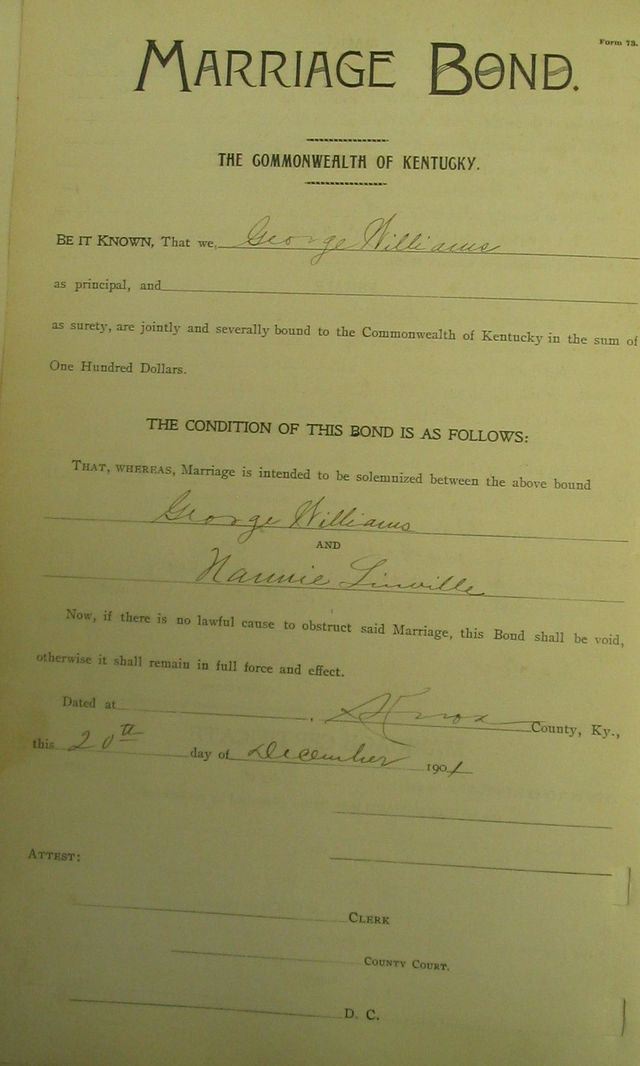 Form 73.
MARRIAGE BOND.
THE COMMONWEALTH OF KENTUCKY.
BE IT KNOWN, That we, George Williams
as principal, and
as surety, are jointly and severally bound to the Commonwealth of Kentucky in the sum of
One Hundred Dollars.
THE CONDITION OF THIS BOND IS AS FOLLOWS:
THAT, WHEREAS, Marriage is intended to be solemnized between the above bound
George Williams
AND
Nannie Linville
Now, if there is no lawful cause to obstruct said Marriage, this Bond shall be void,
otherwise it shall remain in full force and effect.
Dated at . Knox County, Ky.,
this 20th day of December 1901
ATTEST:
CLERK
COUNTY COURT.
D. C.